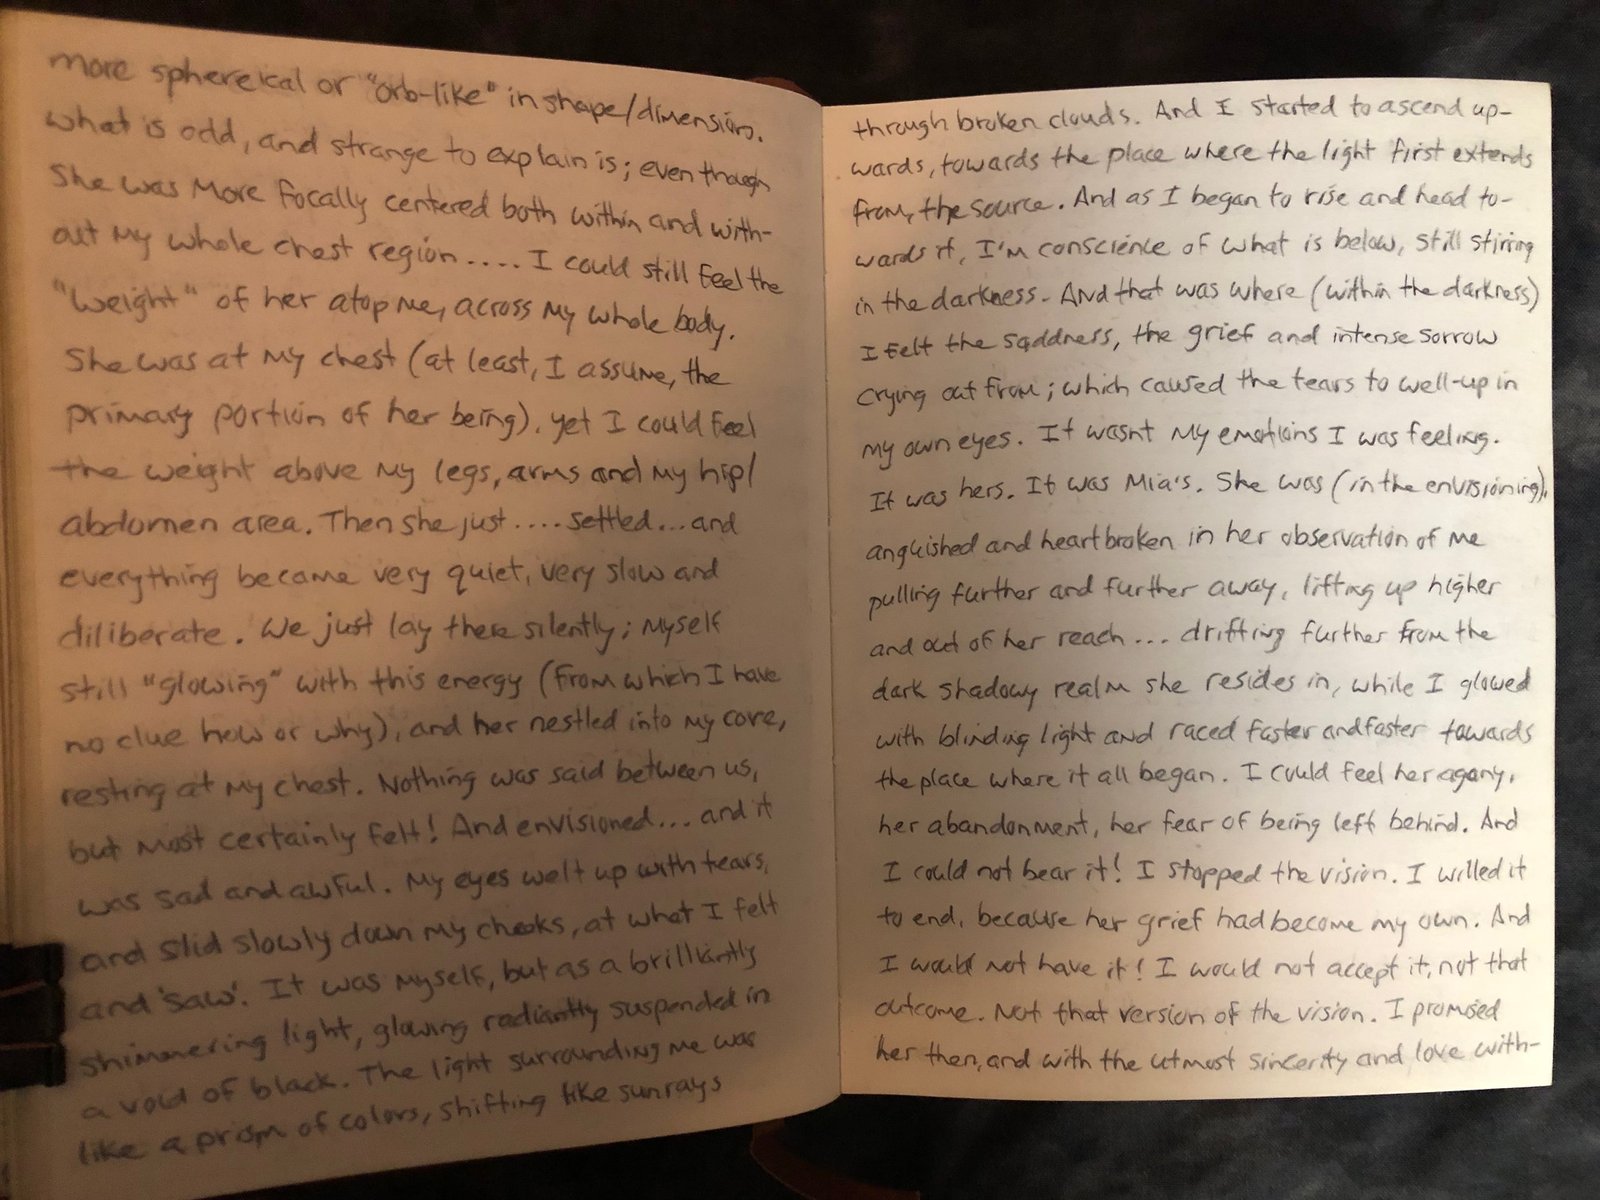 more sphereical or "orb-like" in shape/dimension.
What is odd, and strange to explain is; even though
She was more focally centered both within and with-
out my whole chest region.... I could still feel the
"weight" of her atop me, across my whole body.
She was at my chest (at least, I assume, the
primary portion of her being). yet I could feel
the weight above my legs, arms and my hip/
abdomen area. Then she just .... settled... and
everything became very quiet, very slow and
diliberate. We just lay there silently; myself
still "glowing" with this energy (from which I have
no clue how or why), and her nestled into my core,
resting at my chest. Nothing was said between us,
but most certainly felt! And envisioned... and it
was sad and awful. My eyes welt up with tears,
and slid slowly down my cheeks, at what I felt
and 'saw'. It was myself, but as a brilliantly
shimmering light, glowing radiantly suspended in
a void of black. The light surrounding me was
like a prism of colors, shifting like sunrays
through broken clouds. And I started to ascend up-
wards, towards the place where the light first extends
from, the source. And as I began to rise and head to-
wards it, I'm conscience of what is below, still stiring
in the darkness. And that was where (within the darkness)
I felt the saddness, the grief and intense sorrow
crying out from; which caused the tears to well-up in
my own eyes. It wasnt my emotions I was feeling.
It was hers. It was Mia's. She was (in the envisioning),
anguished and heartbroken in her observation of me
pulling further and further away, lifting up higher
and out of her reach... drifting further from the
dark shadowy realm she resides in, while I glowed
with blinding light and raced faster and faster towards
the place where it all began. I could feel her agony,
her abandonment, her fear of being left behind. And
I could not bear it! I stopped the vision. I willed it
to end, because her grief had become my own. And
I would not have it! I would not accept it, not that
outcome. Not that version of the vision. I promised
her then, and with the utmost sincerity and love with-